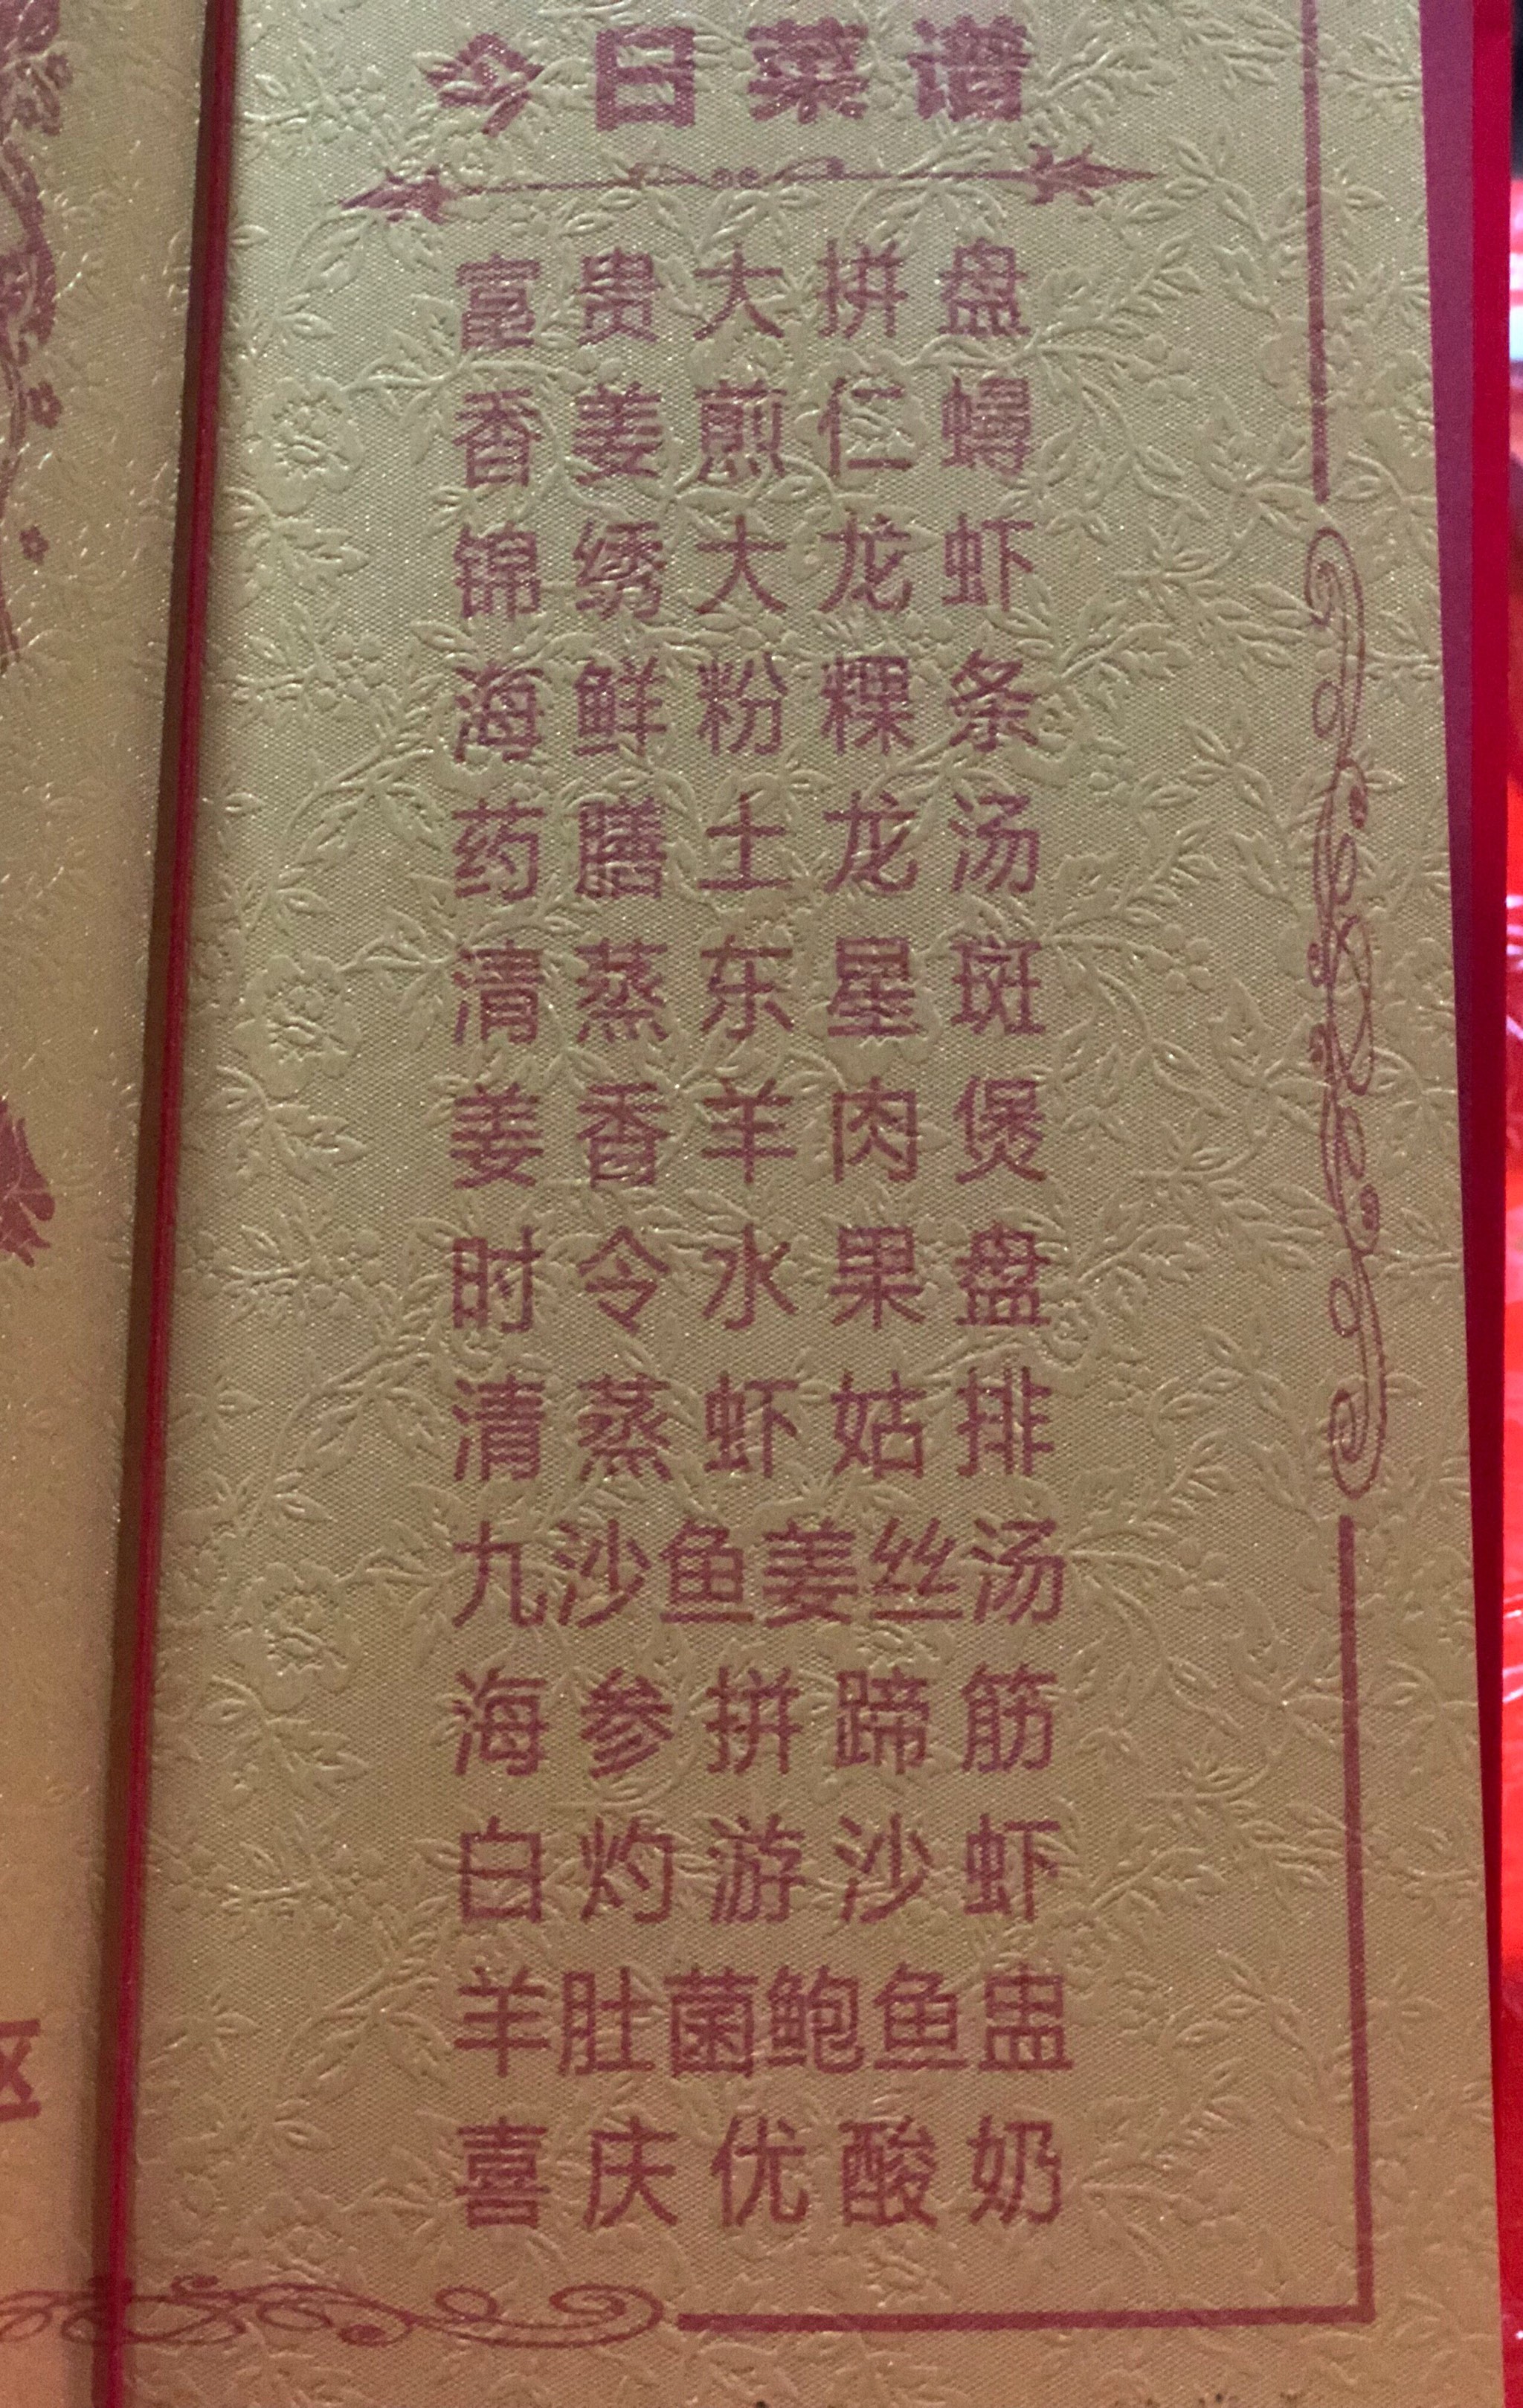 今日菜谱
富贵大拼盘
香姜煎仁蟳
锦绣大龙虾
海鲜粉粿条
药膳土龙汤
清蒸东星斑
姜香羊肉煲
时令水果盘
清蒸虾姑排
九沙鱼姜丝汤
海参拼蹄筋
白灼游沙虾
羊肚菌鲍鱼盅
喜庆优酸奶